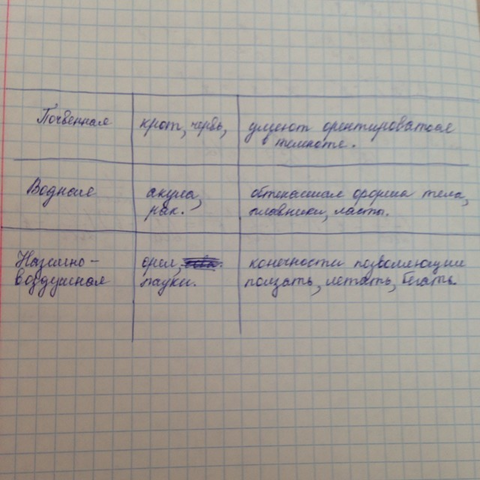 Почвенная
крот, червь,
умеют орентироватося
темноте.
Водная
акула,
рак.
обтекаемая форма тела,
плавники, ласты.
Наземно-
воздушная
орел,
пауки.
конечности позволяющие
ползать, летать, бегать.